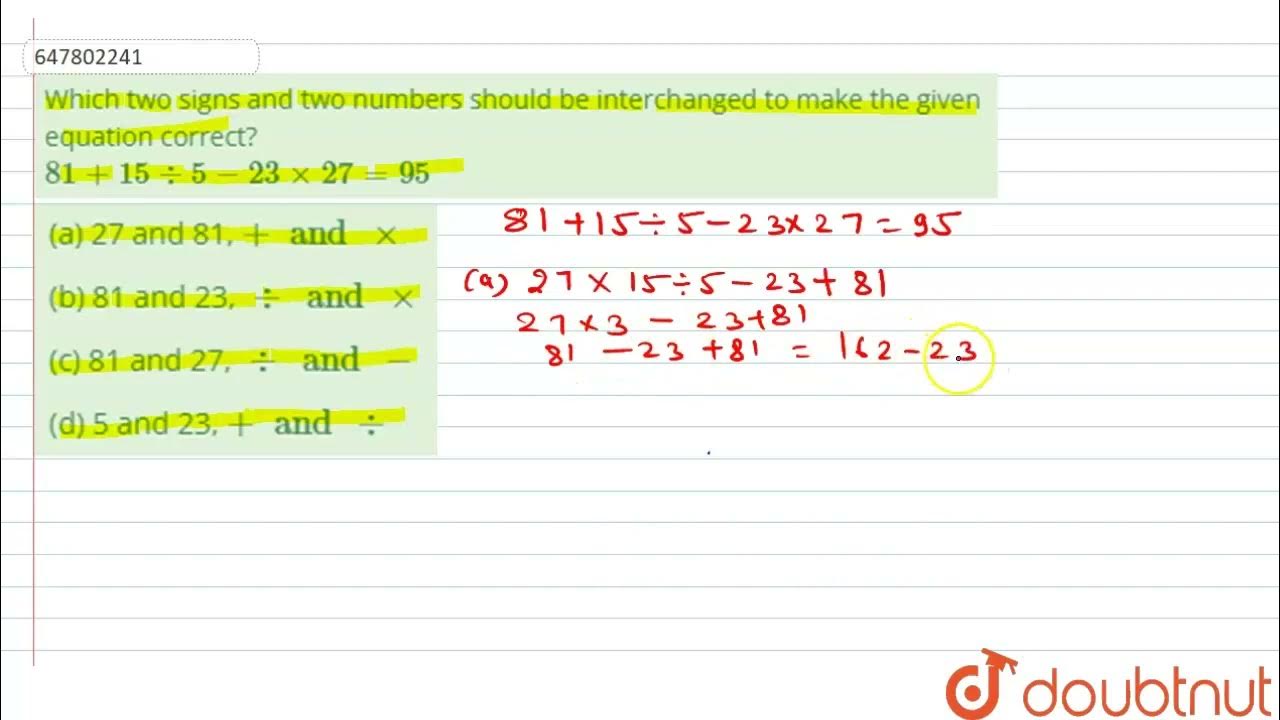 647802241
Which two signs and two numbers should be interchanged to make the given
equation correct?
81 + 15 ÷ 5 − 23 × 27 = 95
(a) 27 and 81, + and ×
(b) 81 and 23, ÷ and ×
(c) 81 and 27, ÷ and −
(d) 5 and 23, + and ÷
81 + 15 ÷ 5 − 23 × 27 = 95
(a) 27 × 15 ÷ 5 − 23 + 81
27 × 3 − 23 + 81
81 − 23 + 81 = 162 − 23
doubtnut